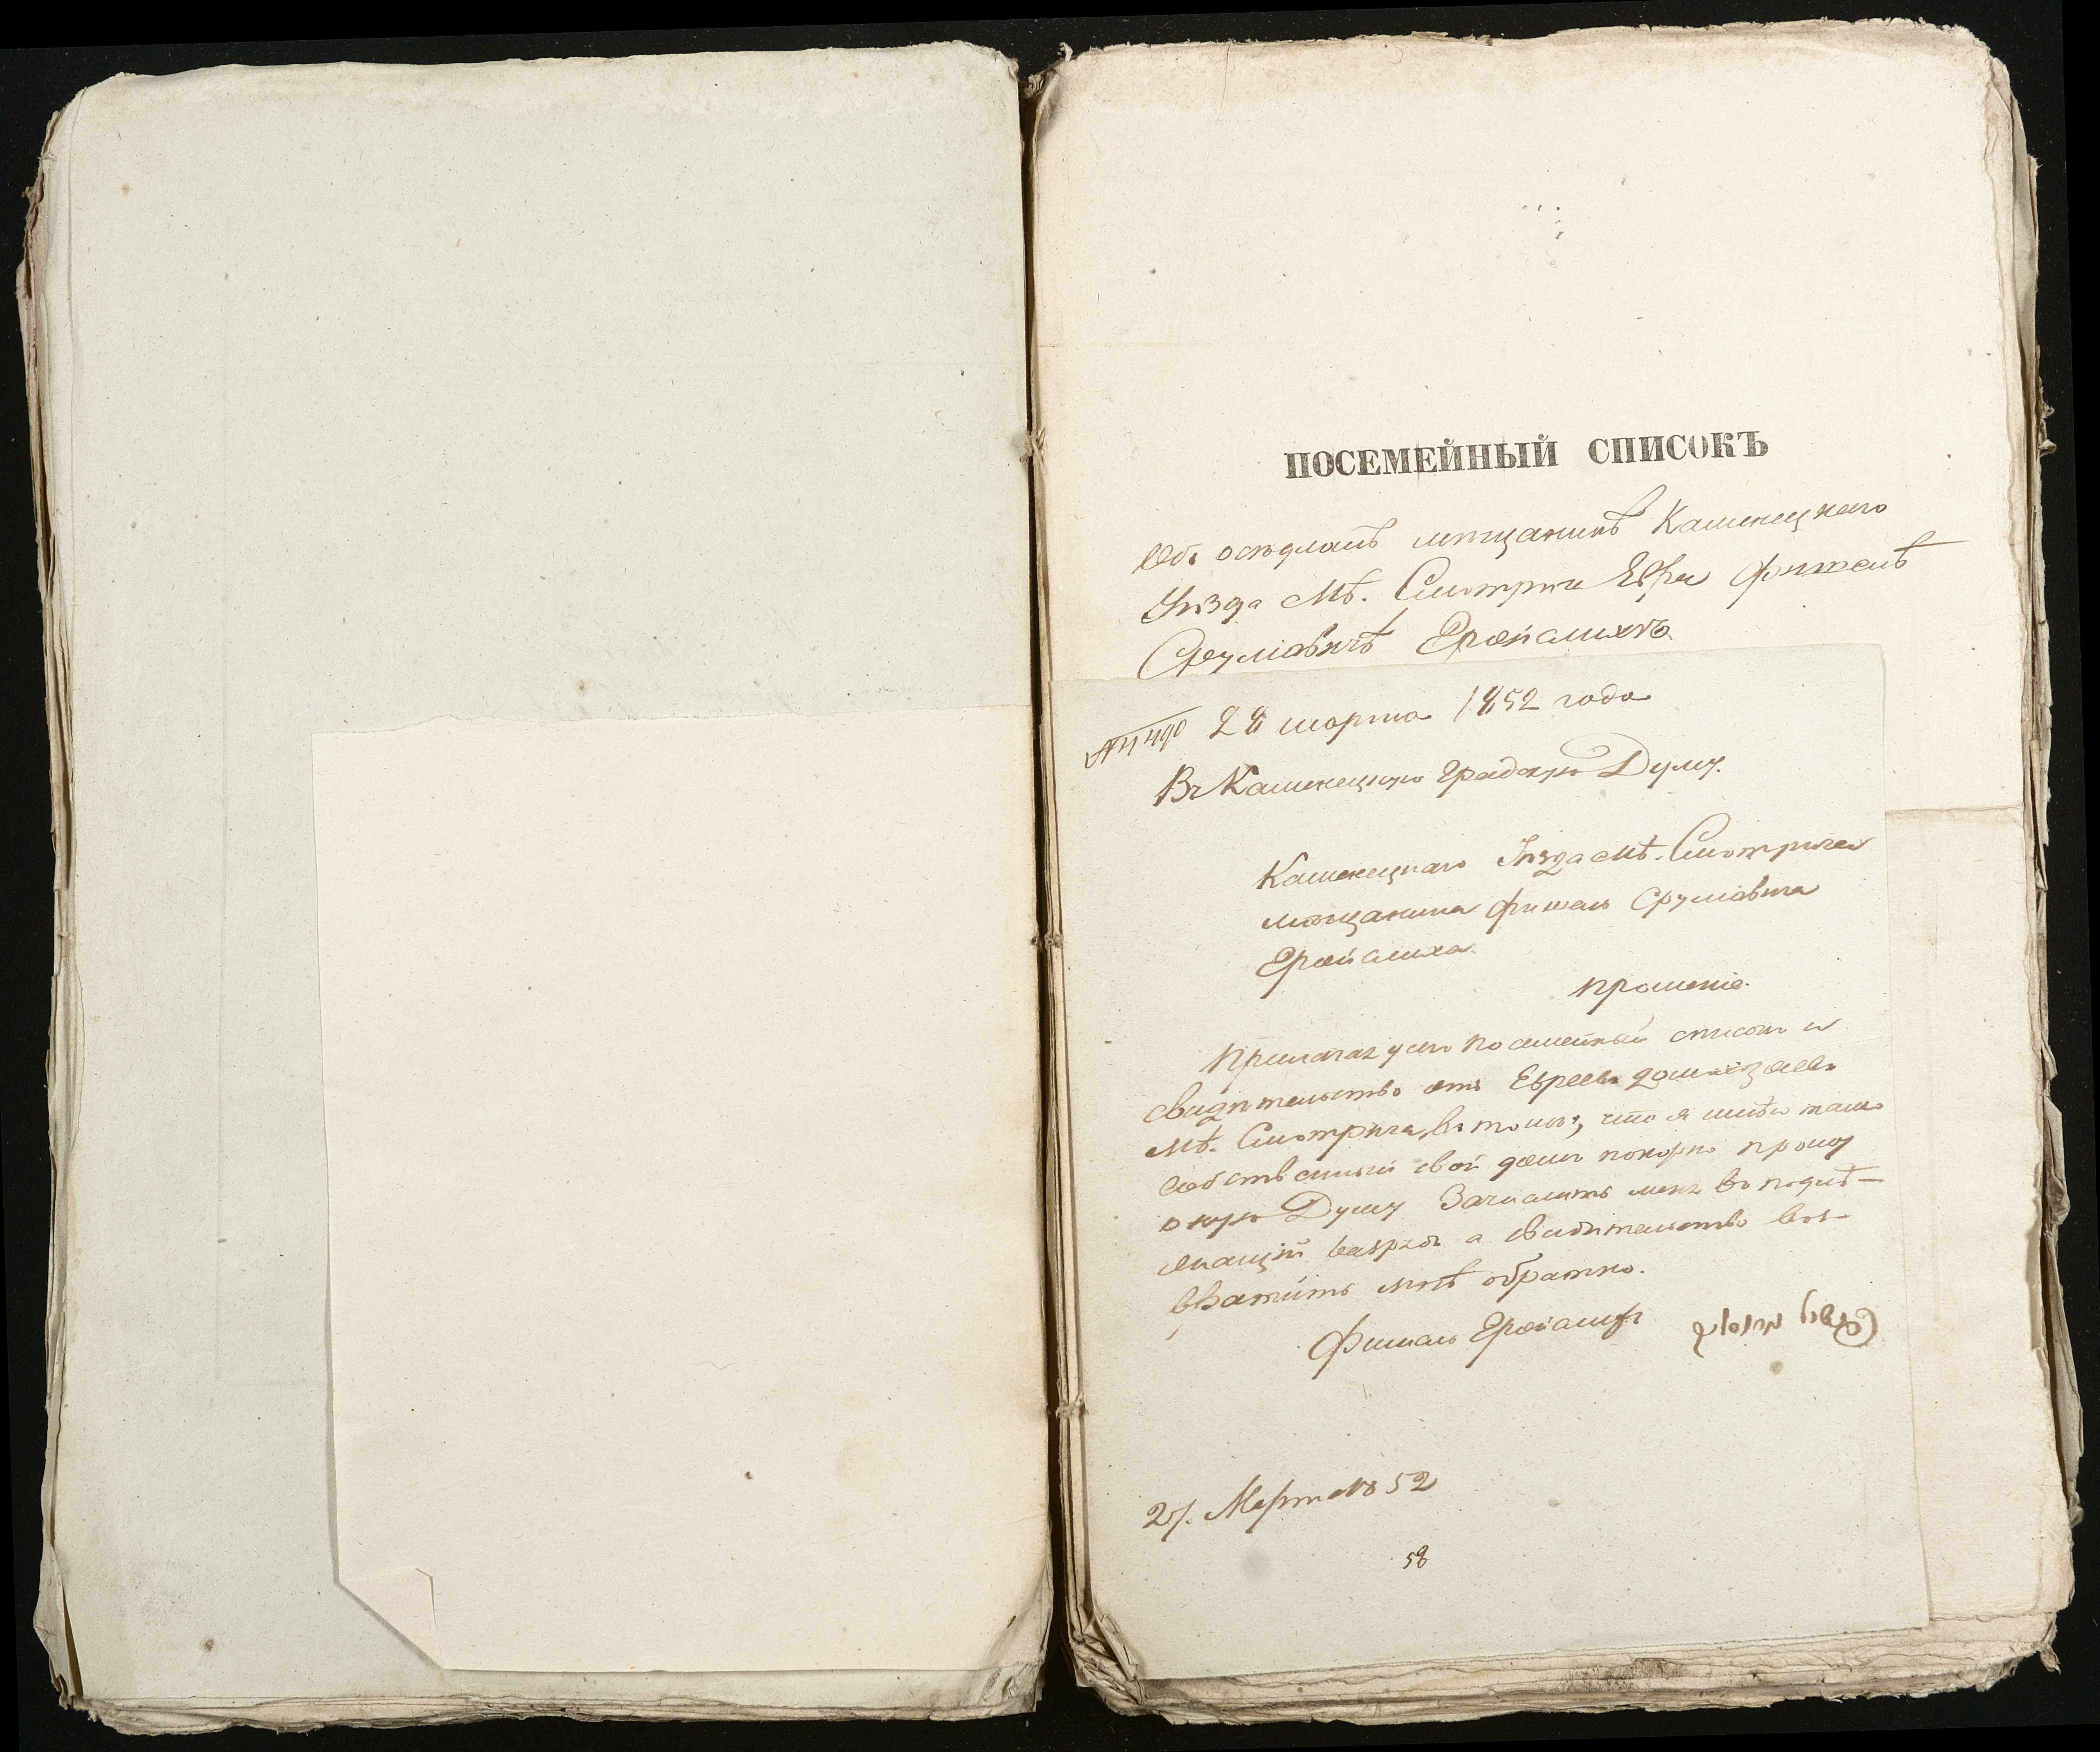 ПОСЕМЕЙНЫЙ СПИСОКЪ
Объ осѣдломъ мѣщанинѣ Каменецкаго
Уѣзда Мѣ. Смотрича Евреѣ Фишелѣ
Сруліовичѣ Еройслихъ
28 марта 1852 года
Въ Каменецкую Градскую Думу.
Каменецкаго Уѣзда Мѣ. Смотрича
мѣщанина Фишель Сруліовича
Еройслиха
Прошеніе.
Прилагая у сего посемейный списокъ и
свидѣтельство отъ Евреевъ домохозяевъ
Мѣ. Смотрича, въ томъ, что я имѣю тамъ
собственный свой домъ покорно прошу
оную Думу Зачислить меня въ подлѣ-
жащій разрядъ а свидѣтельство воз-
вратить мнѣ обратно.
Фишель Еройслихъ
27. Марта 1852
58